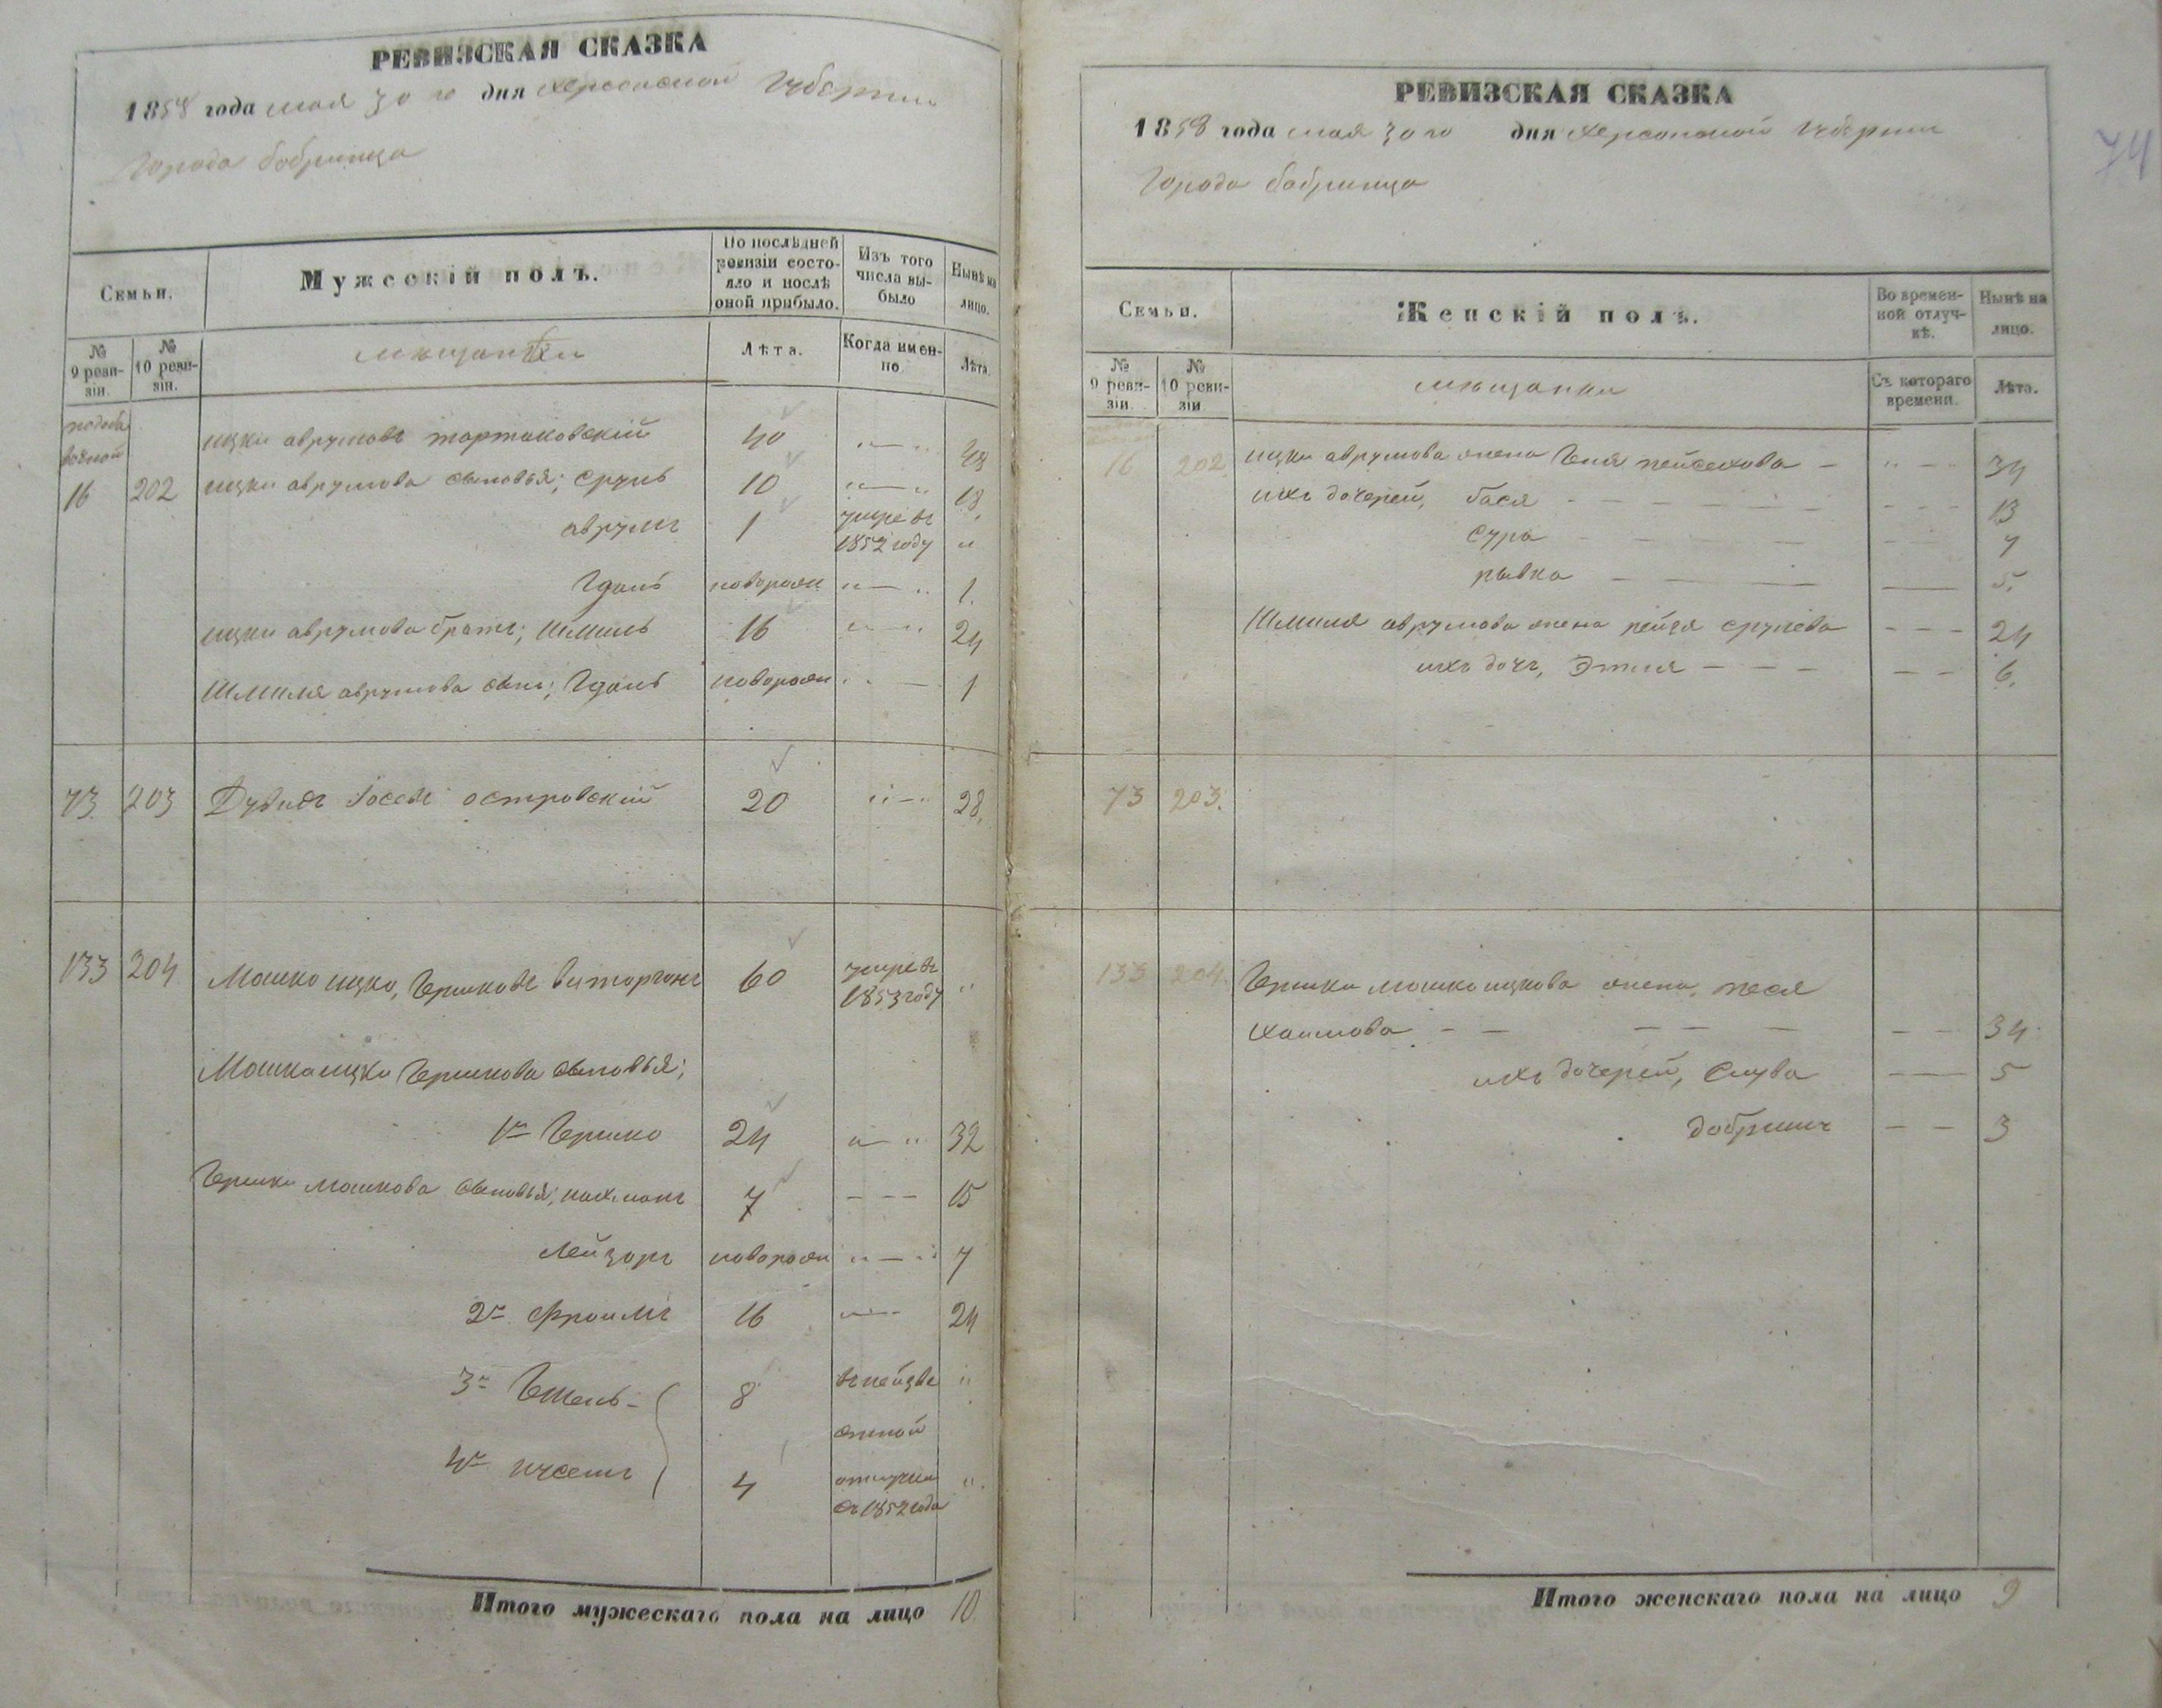 РЕВИЗСКАЯ СКАЗКА
1858 года мая 30 го дня Херсонской Губернии
Города Бобринца
Семьи.
Мужескій полъ.
По послѣдней ревизіи состояло и послѣ оной прибыло.
Изъ того числа выбыло
Нынѣ на лицо.
№ 9 ревизіи.
№ 10 ревизіи.
мещане
Лѣта.
Когда именно
Лѣта.
ицко аврумовъ тартаковскій 40 "—" 48
16 202 ицки аврумова сыновья; сруль 10 "—" 18
аврумъ 1 умре въ 1852 году "
Гдаль новорожд "—" 1.
ицки аврумова братъ; Шмиль 16 "—" 24
Шмиля аврумова сынъ; Гдаль новорожд "—" 1
73 203 Дувидъ Іосевъ островскій 20 "—" 28.
133 204 Мошко ицко, Гершковъ виторганъ 60 умре въ 1853 году "
Мошкаицки Гершкова сыновья;
1й Гершко 24 "—" 32
Гершки мошкова сыновья; нахманъ 7 – – – 15
Лейзоръ новорожд "—" 7
2й Фроимъ 16 "—" 24
3й 8 въ неизве "
стной
4й 4 отлучки ".
съ 1852 года
Итого мужескаго пола на лицо 10.
РЕВИЗСКАЯ СКАЗКА
1858 года мая 30 го дня Херсонской Губернии
Города Бобринца
74
Семьи.
Женскій полъ.
Во временной отлучкѣ.
Нынѣ на лицо.
№ 9 ревизіи.
№ 10 ревизіи
мещанки
Съ котораго времени.
Лѣта.
16 202 ицки аврумова жена Геня пейсахова – "–" 34
ихъ дочерей, бася – – – 13
сура – – – 7
рывка – – – 5.
Шмиля аврумова жена рейзя срулева – – – 24
ихъ дочь, Этля – – – 6.
73 203.
133 204. Гершки мошкоицкова жена песя
хаимова – – – 34
ихъ дочерей, слува – – 5
добришъ – – 3
Итого женскаго пола на лицо 9